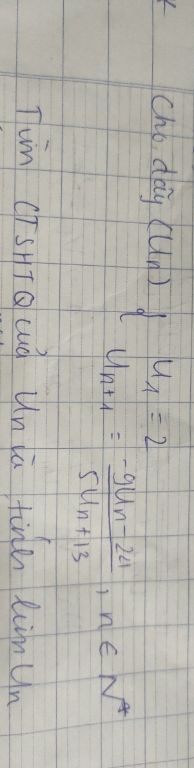 Cho dãy (Un) { U1 = 2
Un+1 = (-9Un - 24)/(5Un + 13), n ∈ N*
Tìm CTSHTQ của Un và tính lim Un